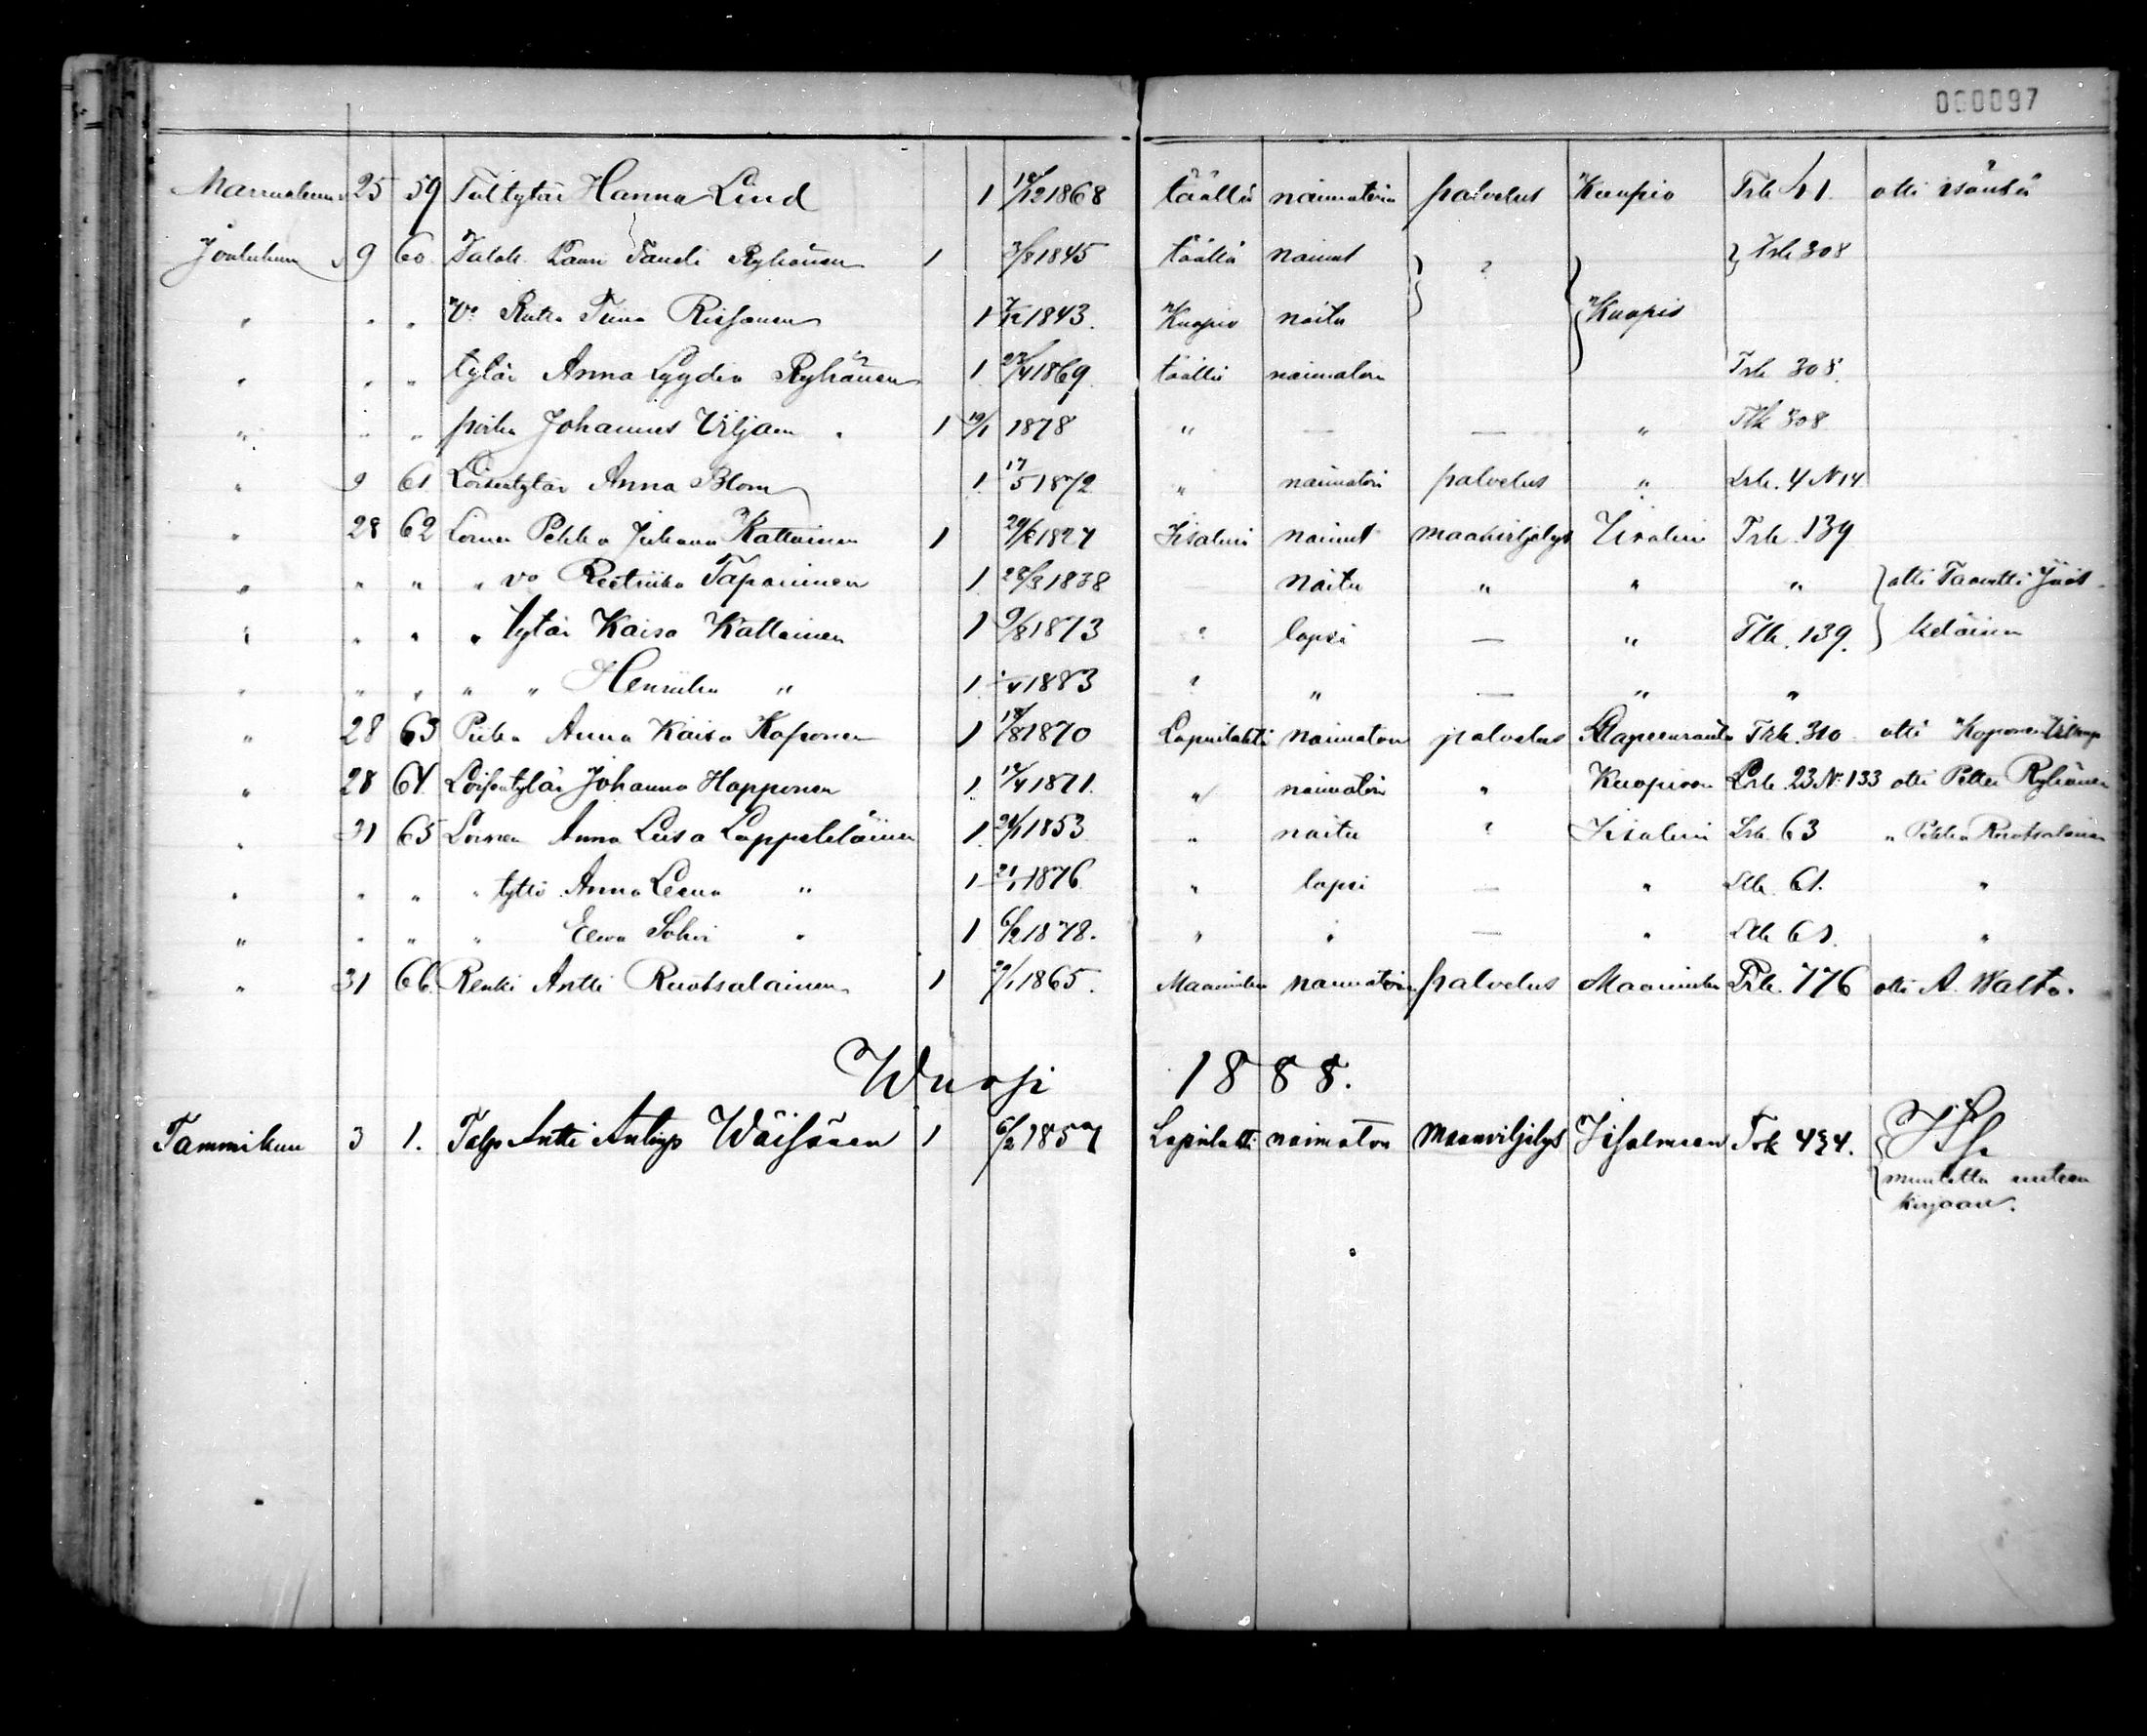 000097
Marraskuu 25 59 Tal tytär Hanna Lind 1 12 1868 täällä naimatoin palvelus Kuopio Trk 41. otti isäntä
Joulukuu 9 60. Lauri Taneli Ryhänen 1 3/8 1845 täällä nainut ? Trk 308
" " " Vo Tiina Rissanen 1 1843. Kuopio naitu Kuopio
" " " tytär Anna Lyydia Ryhänen 1 1869. täällä naimatoin Trk 308.
" " " poika Johannes Viljam " 1 19/1 1878 " — — " Ttk 308
" 9 61 Loisentytär Anna Blom 1 17/5 1872 " naimatoin palvelus " Lrk. 4 N 14
" 28 62 Loinen Pekka Juhana Kattainen 1 1827 Iisalmi nainut maanviljelys Iisalmi Trk. 139
" " " " vo Reetriika Tapaninen 1 28/3 1838 naitu " " " otti Taavetti Jääs-
" " " " tytär Kaisa Kattainen 1 9/8 1873 ? lapsi — " Ttk. 139. keläinen
" " " " " Henriika " 1 1883 ? " — " "
" 28 63 Piika Anna Kaisa Koponen 1 18/8 1870 Lapinlahti naimatoin palvelus Lappeenranta Trk. 310 otti Koponen
" 28 64. Loisentytär Johanna Happonen 1 1871. " naimatoin " Kuopioon Lrk. 23 N: 133 otti Petter Ryhänen
" 31 65 Loinen Anna Liisa Lappeteläinen 1 24/1 1853 " naitu ? Iisalmi Lrk. 63 " Pekka Ruotsalainen
" " " " tyttö Anna Leena " 1 21/1 1876 " lapsi — " Ltk. 61. "
" " " " Eeva Sohvi " 1 6/2 1878. " " — " Ltk 61. "
" 31 66. Renki Antti Ruotsalainen 1 1865. Maaninka naimatoin palvelus Maaninka Trk. 776 otti A. Walta.
Wuosi 1888.
Tammikuu 3 1. Talp Antti Antinp Wäisänen 1 6/2 1857 Lapinlahti naimaton Maanviljelys Iisalmeen Trk 434.
muutettu uuteen
kirjaan.